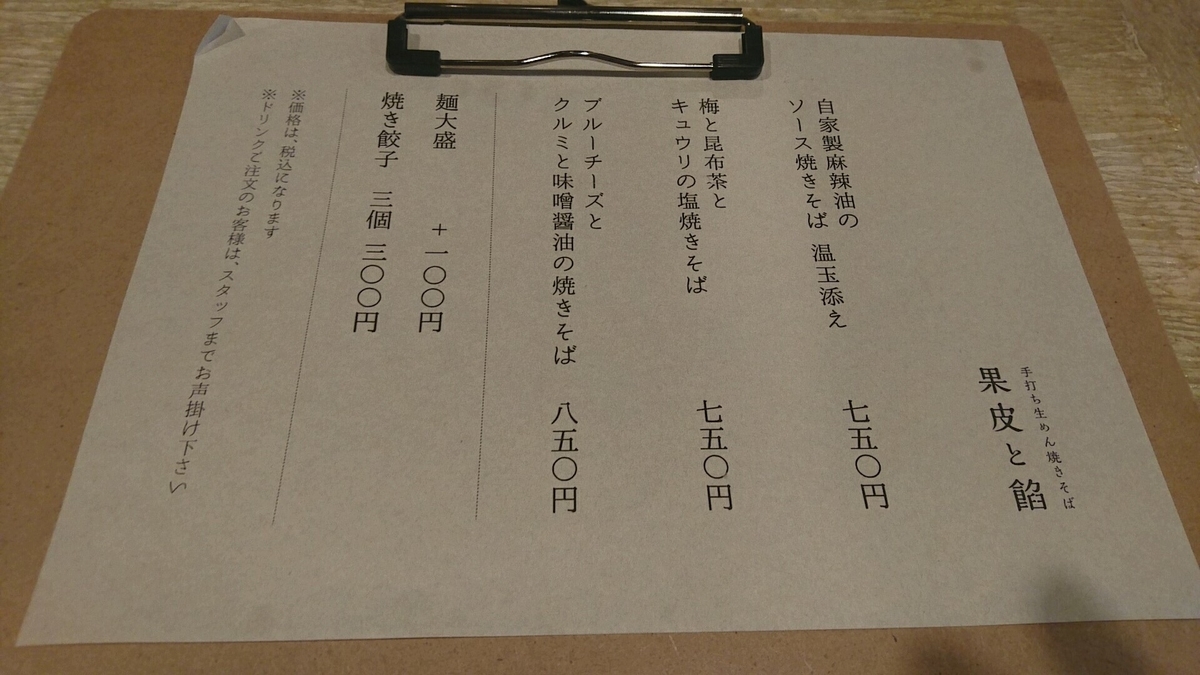 手打ち生めん焼きそば
果皮と餡
自家製麻辣油の
ソース焼きそば 温玉添え
七五〇円
梅と昆布茶と
キュウリの塩焼きそば
七五〇円
ブルーチーズと
クルミと味噌醤油の焼きそば
八五〇円
麺大盛 +一〇〇円
焼き餃子 三個 三〇〇円
※価格は、税込になります
※ドリンクご注文のお客様は、スタッフまでお声掛け下さい